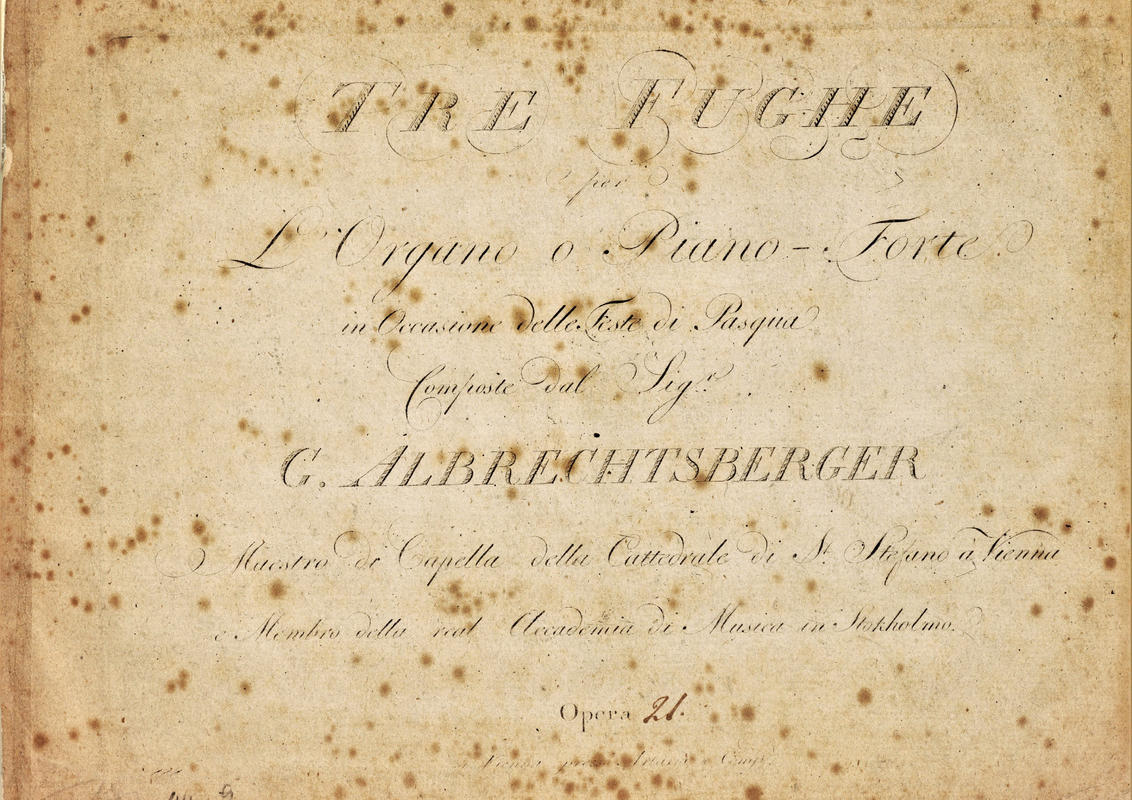 TRE FUGHE
per
L'Organo o Piano-Forte
in Occasione delle Feste di Pasqua
Composte dal Sigr.
G. ALBRECHTSBERGER
Maestro di Capella della Cattedrale di St. Stefano à Vienna
e Membro della real Accademia di Musica in Stokholmo.
Opera 21.
Vienna presso Artaria e Comp.